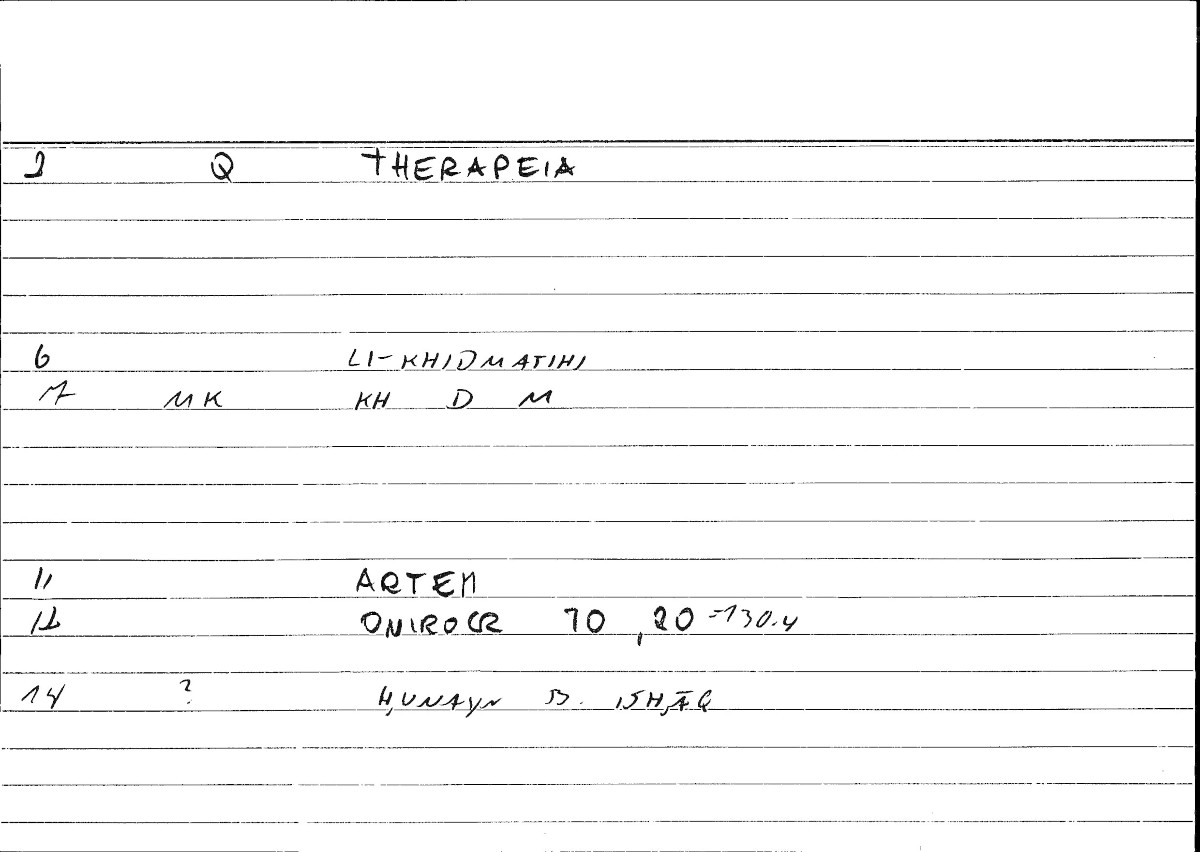 2 Q THERAPEIA
6 LI-KHIDMATIHI
7 MK KH D M
11 ARTEM
12 ONIROCR 70,20 =130.4
14 ? H,UNAYN B. ISH,ĀQ